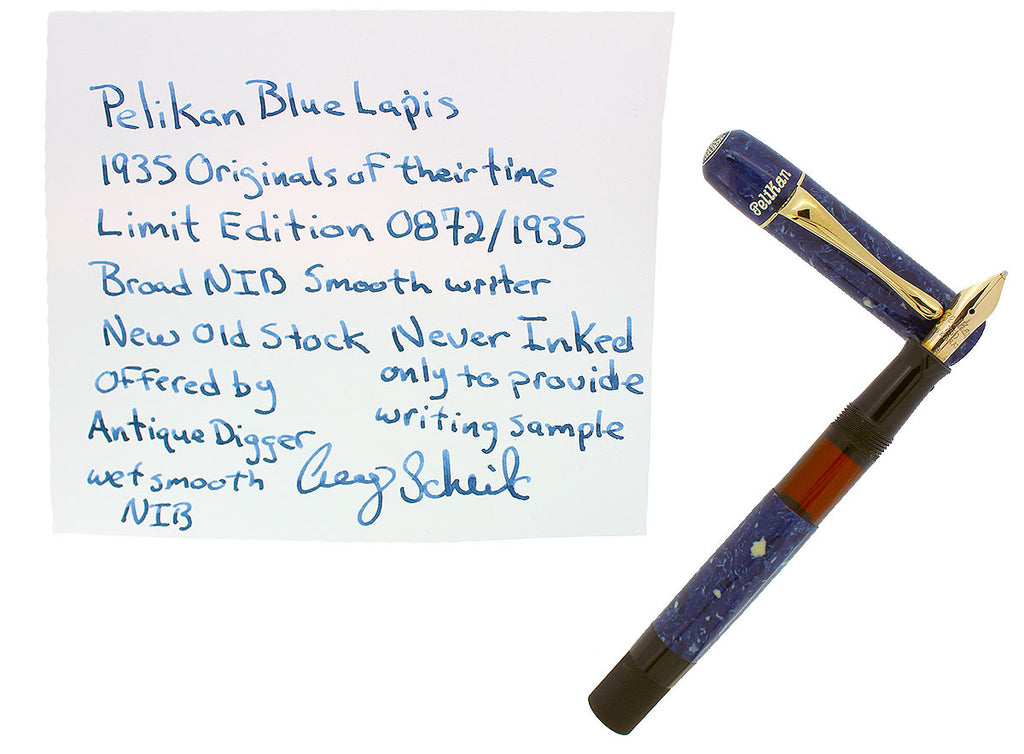 Pelikan Blue Lapis
1935 Originals of their time
Limit Edition 0872/1935
Broad NIB Smooth writer
New Old Stock Never Inked
only to provide
writing sample
Offered by
Antique Digger
wet smooth
NIB
Pelikan